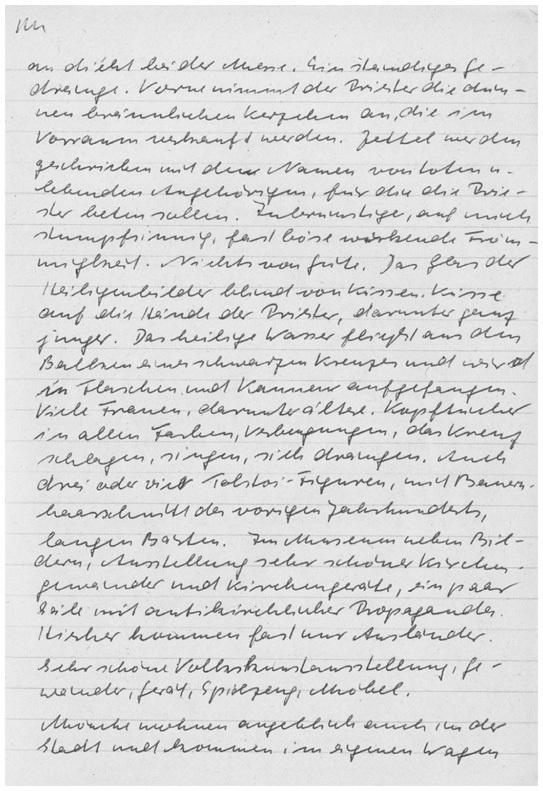 an dicht bei der Messe. Ein ständiges Ge-
dränge. Vorne nimmt der Priester die dün-
nen bräunlichen Kerzchen an, die im
Vorraum verkauft werden. Zettel werden
geschrieben mit den Namen von toten u.
lebenden Angehörigen, für die die Prie-
ster beten sollen. Inbrünstige, auf mich
stumpfsinnig, fast böse wirkende Fröm-
migkeit. Nichts von Güte. Das Glas der
Heiligenbilder blind von Küssen. Küsse
auf die Hände der Priester, darunter ganz
junger. Das heilige Wasser fließt aus den
Balken eines schwarzen Kreuzes und wird
in Flaschen und Kannen aufgefangen.
Viele Frauen, darunter ältere. Kopftücher
in allen Farben, Verbeugungen, das Kreuz
schlagen, singen, sich drängen. Auch
drei oder vier Tolstoi-Figuren, mit Bauern-
haarschnitt des vorigen Jahrhunderts,
langen Bärten. Im Museum neben Bil-
dern, Ausstellung sehr schöner Kirchen-
gewänder und Kirchengeräte, ein paar
Säle mit antikirchlicher Propaganda.
Hierher kommen fast nur Ausländer.
Sehr schöne Volkskunstausstellung, Ge-
wänder, Gerät, Spielzeug, Möbel.
Mönche wohnen angeblich auch in der
Stadt und kommen im eigenen Wagen